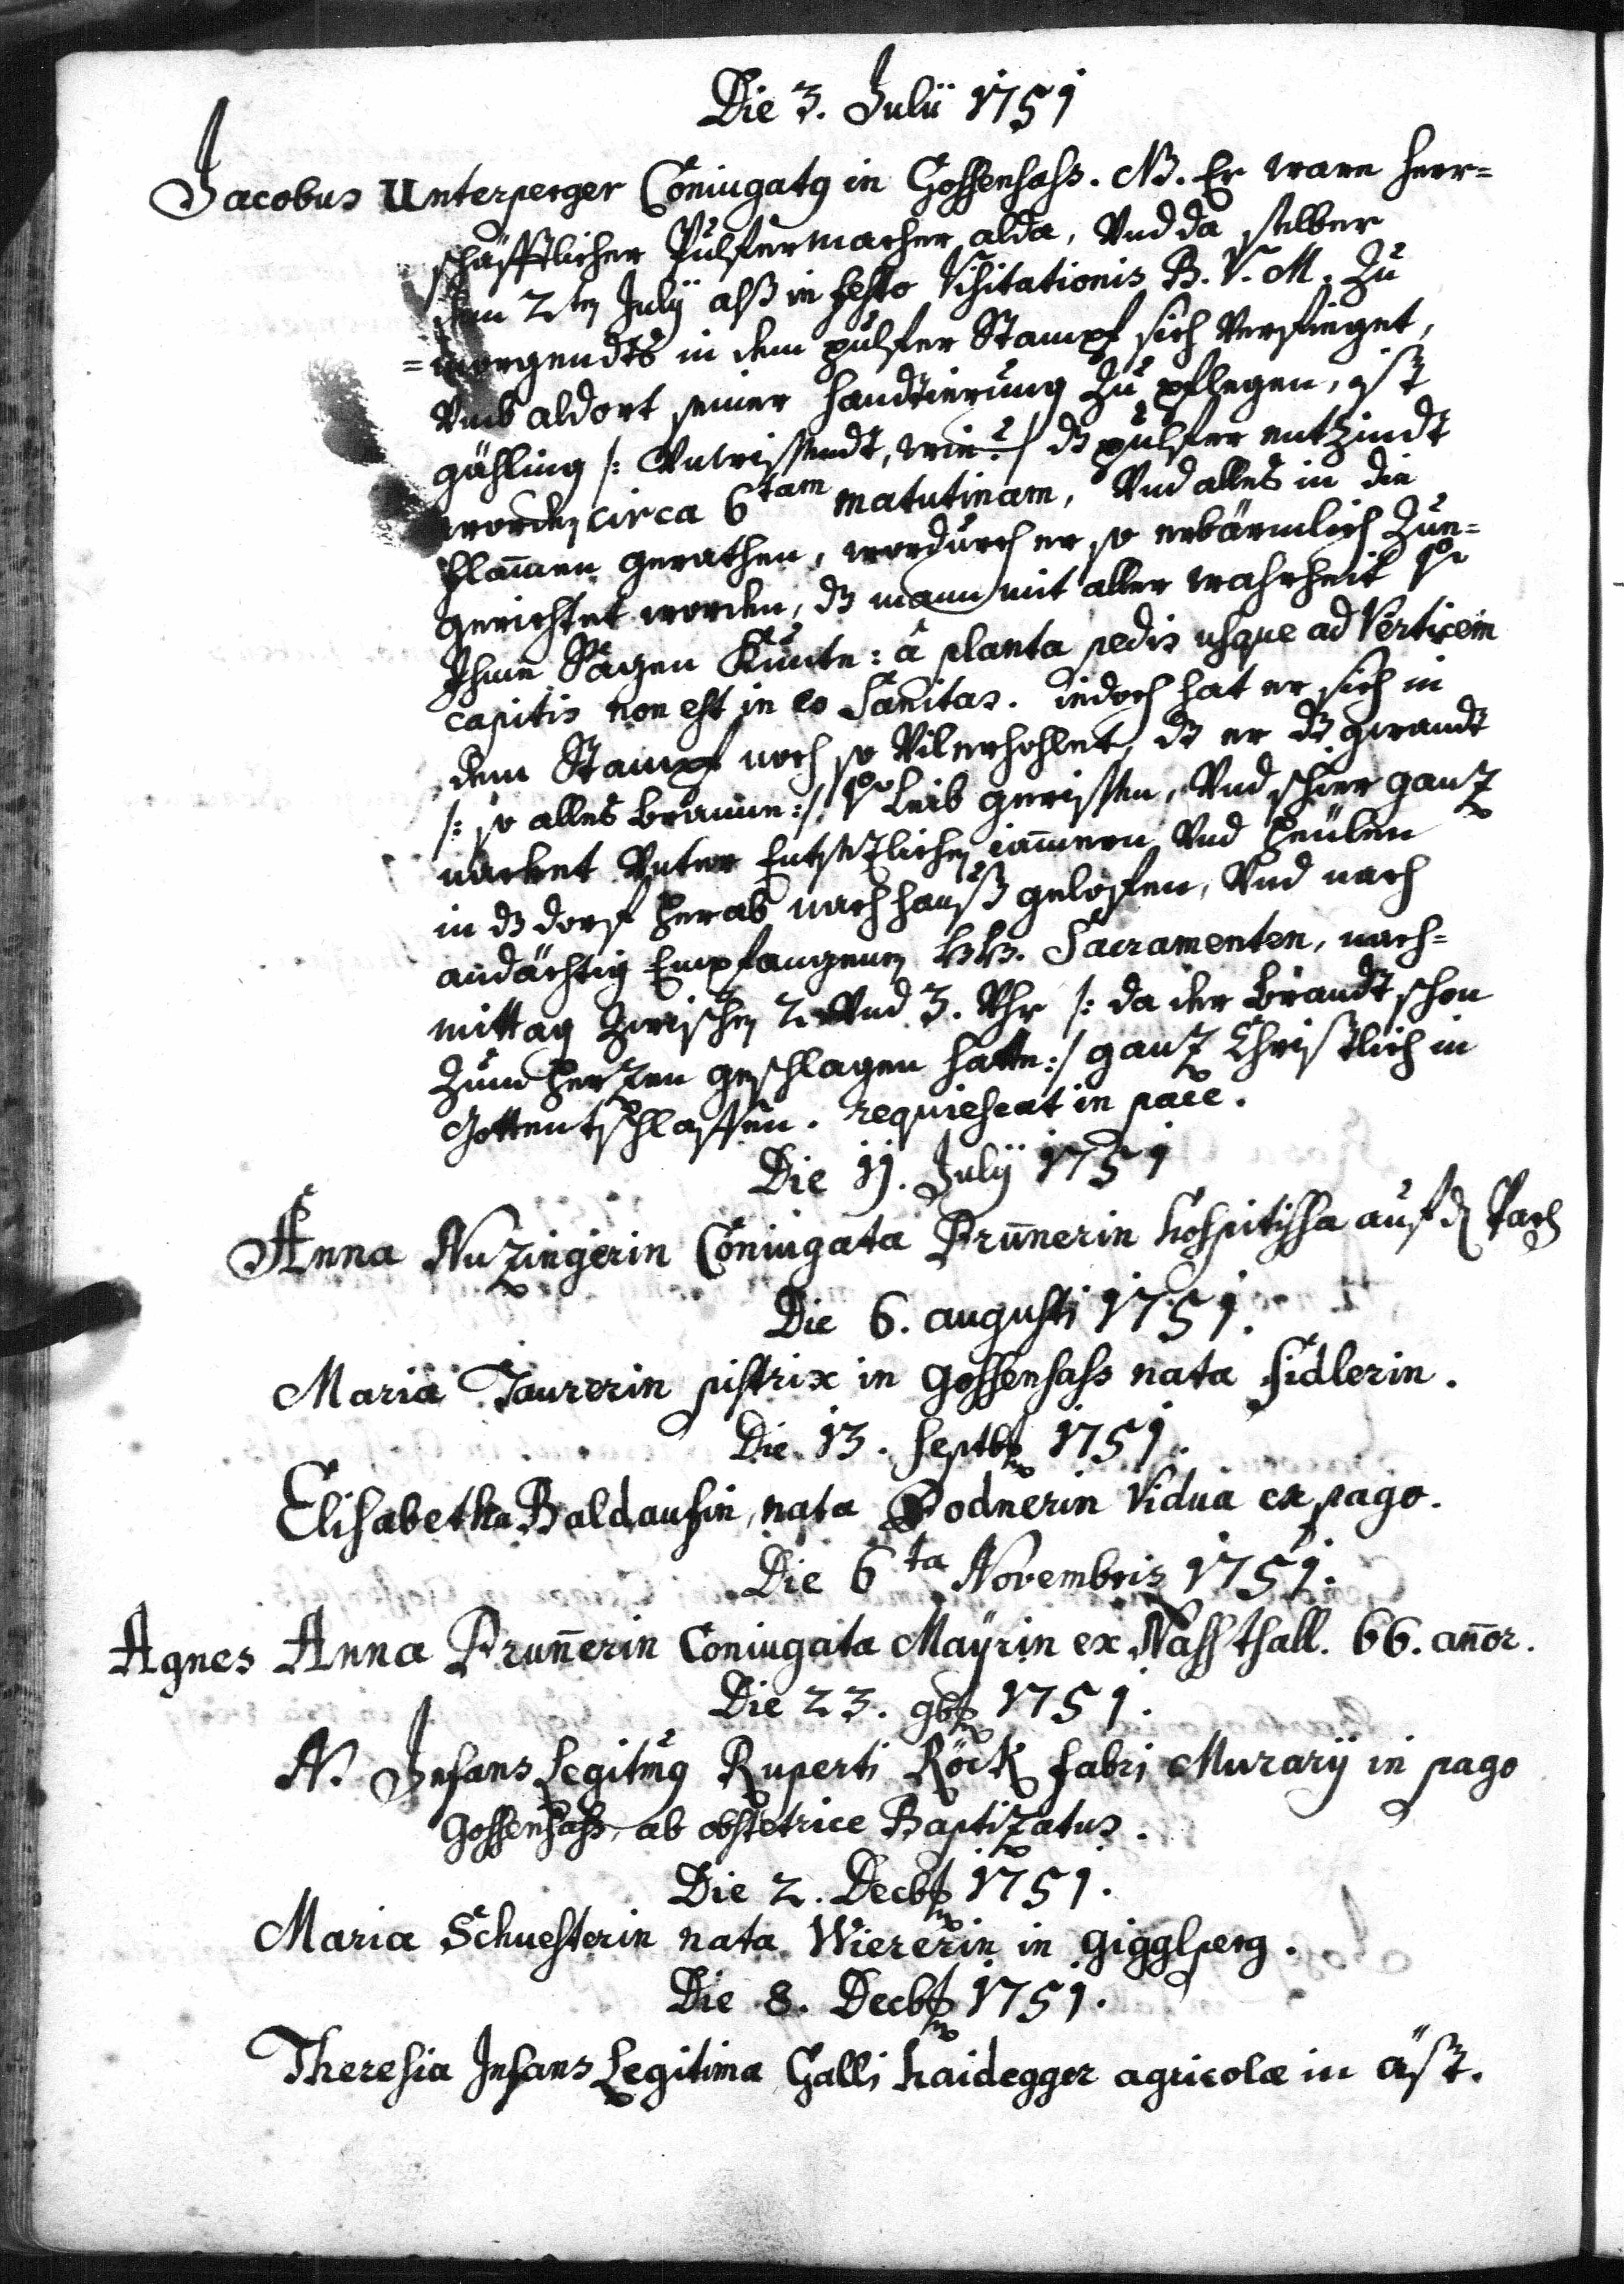 Die 3. Julii 1751
Jacobus Unterperger Coniugatq in Gossensass. NB. Er ware herr=
schäfftlicher Pulfermacher alda, Vnd da selber
den 2ten Julÿ alß in festo Visitationis B. V. M. Zu
=morgendts in dem pulfer Stampf sich Verfieget,
Vmb aldort seiner handtierung Zu pflegen, ist
gähling /: Vnwissendt, wie? :/ dz pulfer entzindt
worden circa 6tam matutinam, Vnd alles in die
flam̅en gerathen, wordurch er so erbärmlich Zue=
gerichtet worden, dz mann mit aller wahrheit von
Ihme Sagen Kunte: à planta pedis usque ad Verticem
capitis non est in eo Sanitas. iedoch hat er sich in
dem Stampf noch so Vil erhohlet, dz er dz gwandt
/: so alles brunne :/ von Leib gerissen, Vnd schier ganz
nacket Vnter Entsezlichen iam̅ern Vnd heülen
in dz dorf herab nach hauß gelofen, Vnd nach
andächtig Empfangenen hh. Sacramenten, nach=
mittag Zwischen 2. Vnd 3. Vhr /: da der brandt schon
Zum herzen geschlagen hatte :/ ganz Christlich in
Gott entschlaffen. requiescat in pace.
Die 11. Julÿ 1751
Anna Nuzingerin Coniugata Prun̅erin hospitissa auf den Pach
Die 6. augusti 1751.
Maria Taurerin pistrix in gossensass nata fidlerin.
Die 13. septbr 1751.
Elisabetha Baldaufin, nata Podnerin Vidua ex pago.
Die 6ta Novembris 1751.
Agnes Anna Prun̅erin Coniugata Maÿrin ex Nassthall. 66. an̅or.
Die 23. 9br 1751.
N. Infans Legitimq Ruperti Röck fabri Murarÿ in pago
Gossensass, ab obstetrice Baptizatus.
Die 2. Decbr 1751.
Maria Schuesterin nata Wiererin in gigglperg.
Die 8. Decbr 1751.
Theresia Infans Legitima Galli haidegger agricolæ in äst.